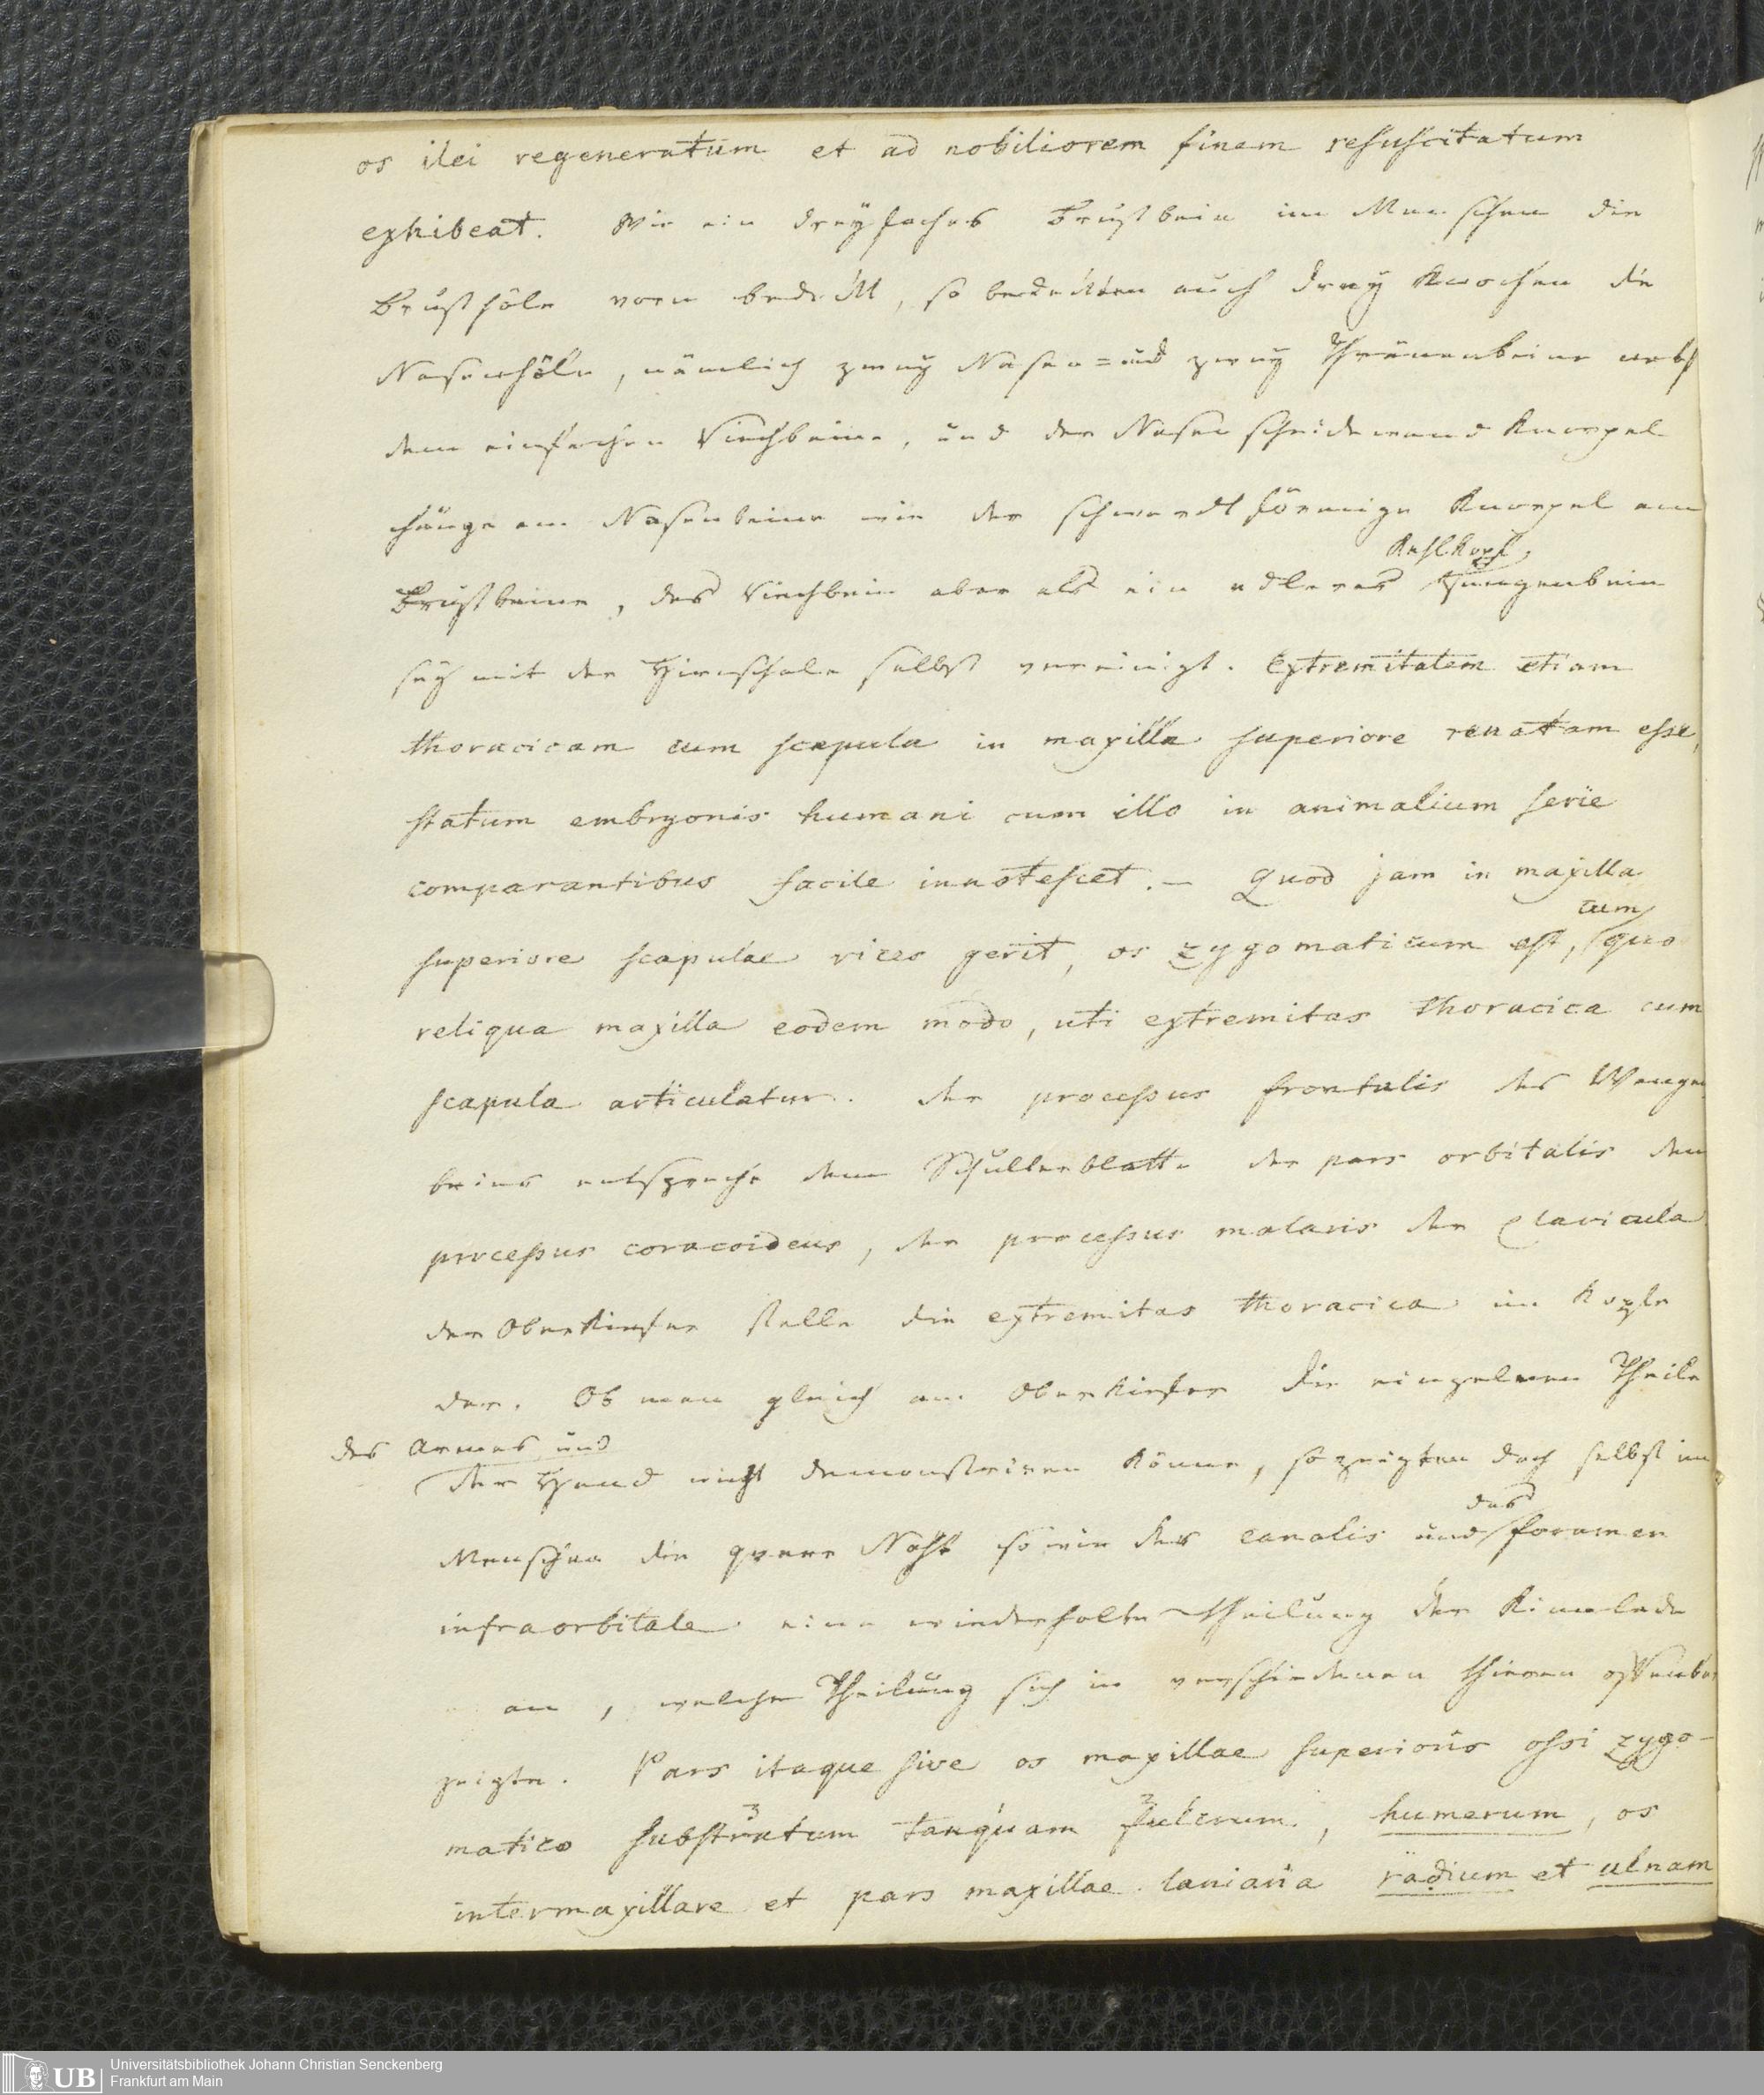 os ilei regeneratum et ad nobiliorem finem resuscitatum
exhibeat. Wie ein dreyfaches Brustbein im Menschen die
Brusthöle vorn bedekt, so bedekten auch drey Knochen die
Nasenhöle, nämlich zwey Nasen= und zwey Thränenbeine nebst
dem einfachen Riechbeine, und der Nasenscheidewand Knorpel
hänge am Nasenbeine wie der schwerdtförmige Knorpel am
Kehlkopf,
Brustbeine, das Riechbein aber als ein edleres Zungenbein
sey mit der Hirnschale selbst vereinigt. Extremitatem etiam
thoracicam cum scapula in maxilla superiore renatam esse,
statum embryonis humani cum illo in animalium serie
comparantibus facile innotescet. – Quod jam in maxilla
cum
superiore scapulae vices gerit, os zygomaticum est, quo
reliqua maxilla eodem modo, uti extremitas thoracica cum
scapula articulatur. der processus frontalis des Wangen
beins entspreche dem Schulterblatte der pars orbitalis dem
processus coracoideus, der processus malaris der Clavicula
der Oberkiefer stelle die extremitas thoracica im Kopfe
dar. Ob man gleich am Oberkiefer die einzelnen Theile
des Armes und
der Hand nicht demonstriren könne, so zeigten doch selbst im
das
Menschen die quere Naht so wie der canalis und foramen
infraorbitale eine wiederholte Theilung der Kinnlade
an, welche Theilung sich in verschiedenen Thieren offenbar
zeigte. Pars itaque sive os maxillae superioris ossi zygo-
matico substratum tanquam fulcrum, humerum, os
intermaxillare et pars maxillae laniaria radium et ulnam
UB
Universitätsbibliothek Johann Christian Senckenberg
Frankfurt am Main